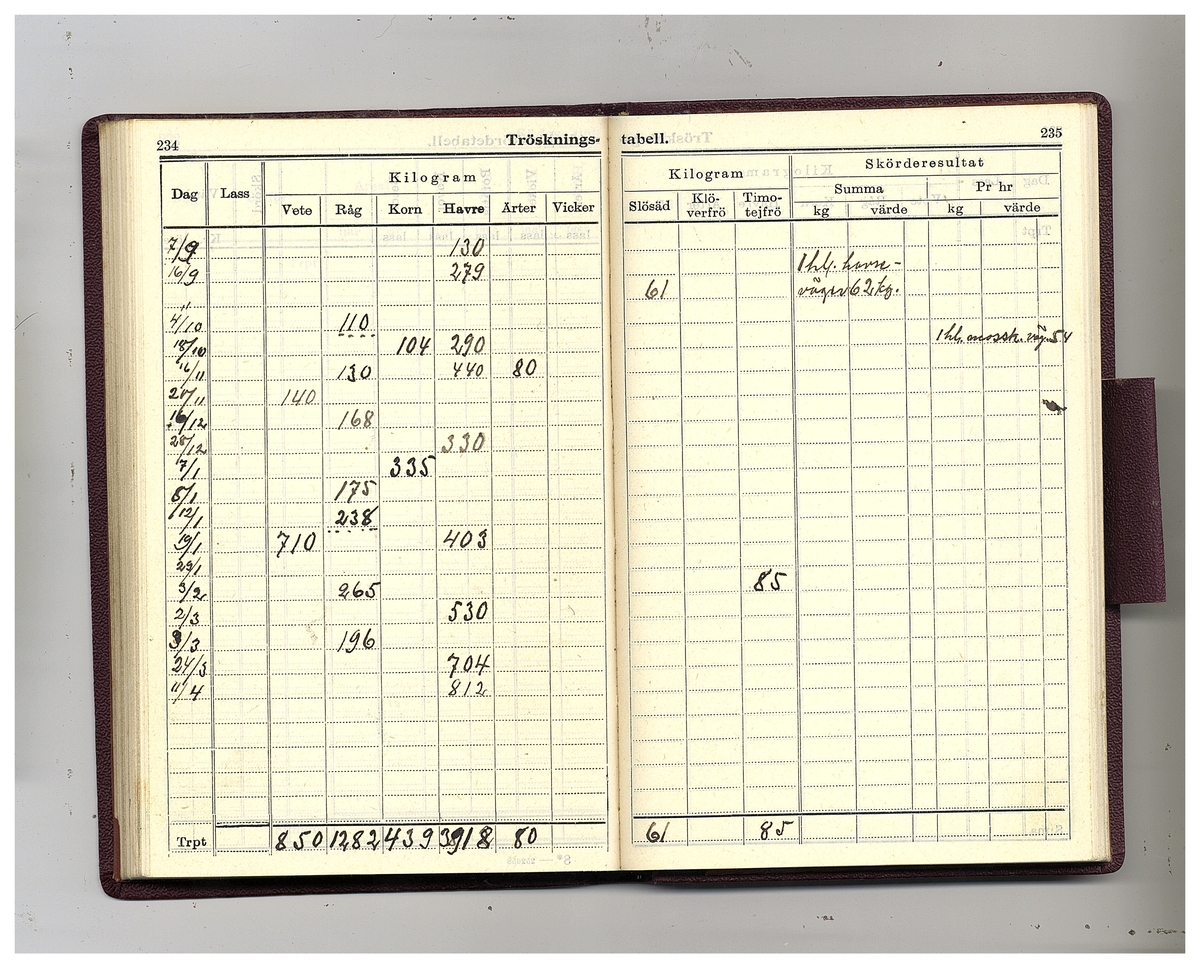 234 Trösknings-
Kilogram
Dag Lass Vete Råg Korn Havre Ärter Vicker
7/9 130
16/9 279
"
4/10 110
18/10 104 290
16/11 130 440 80
140
16/12 168
28/12 330
7/1 335
8/1 175
12/1 238
19/1 710 403
29/1
3/2 265
2/3 530
3/3 196
24/3 704
11/4 812
Trpt 850 1282 439 3918 80
tabell. 235
Kilogram Skörderesultat
Summa Pr hr
Slösäd Klö-verfrö Timo-tejfrö kg värde kg värde
1 hl. havre-
61 väger 62 kg.
1 hl. väg. 54
85
61 85